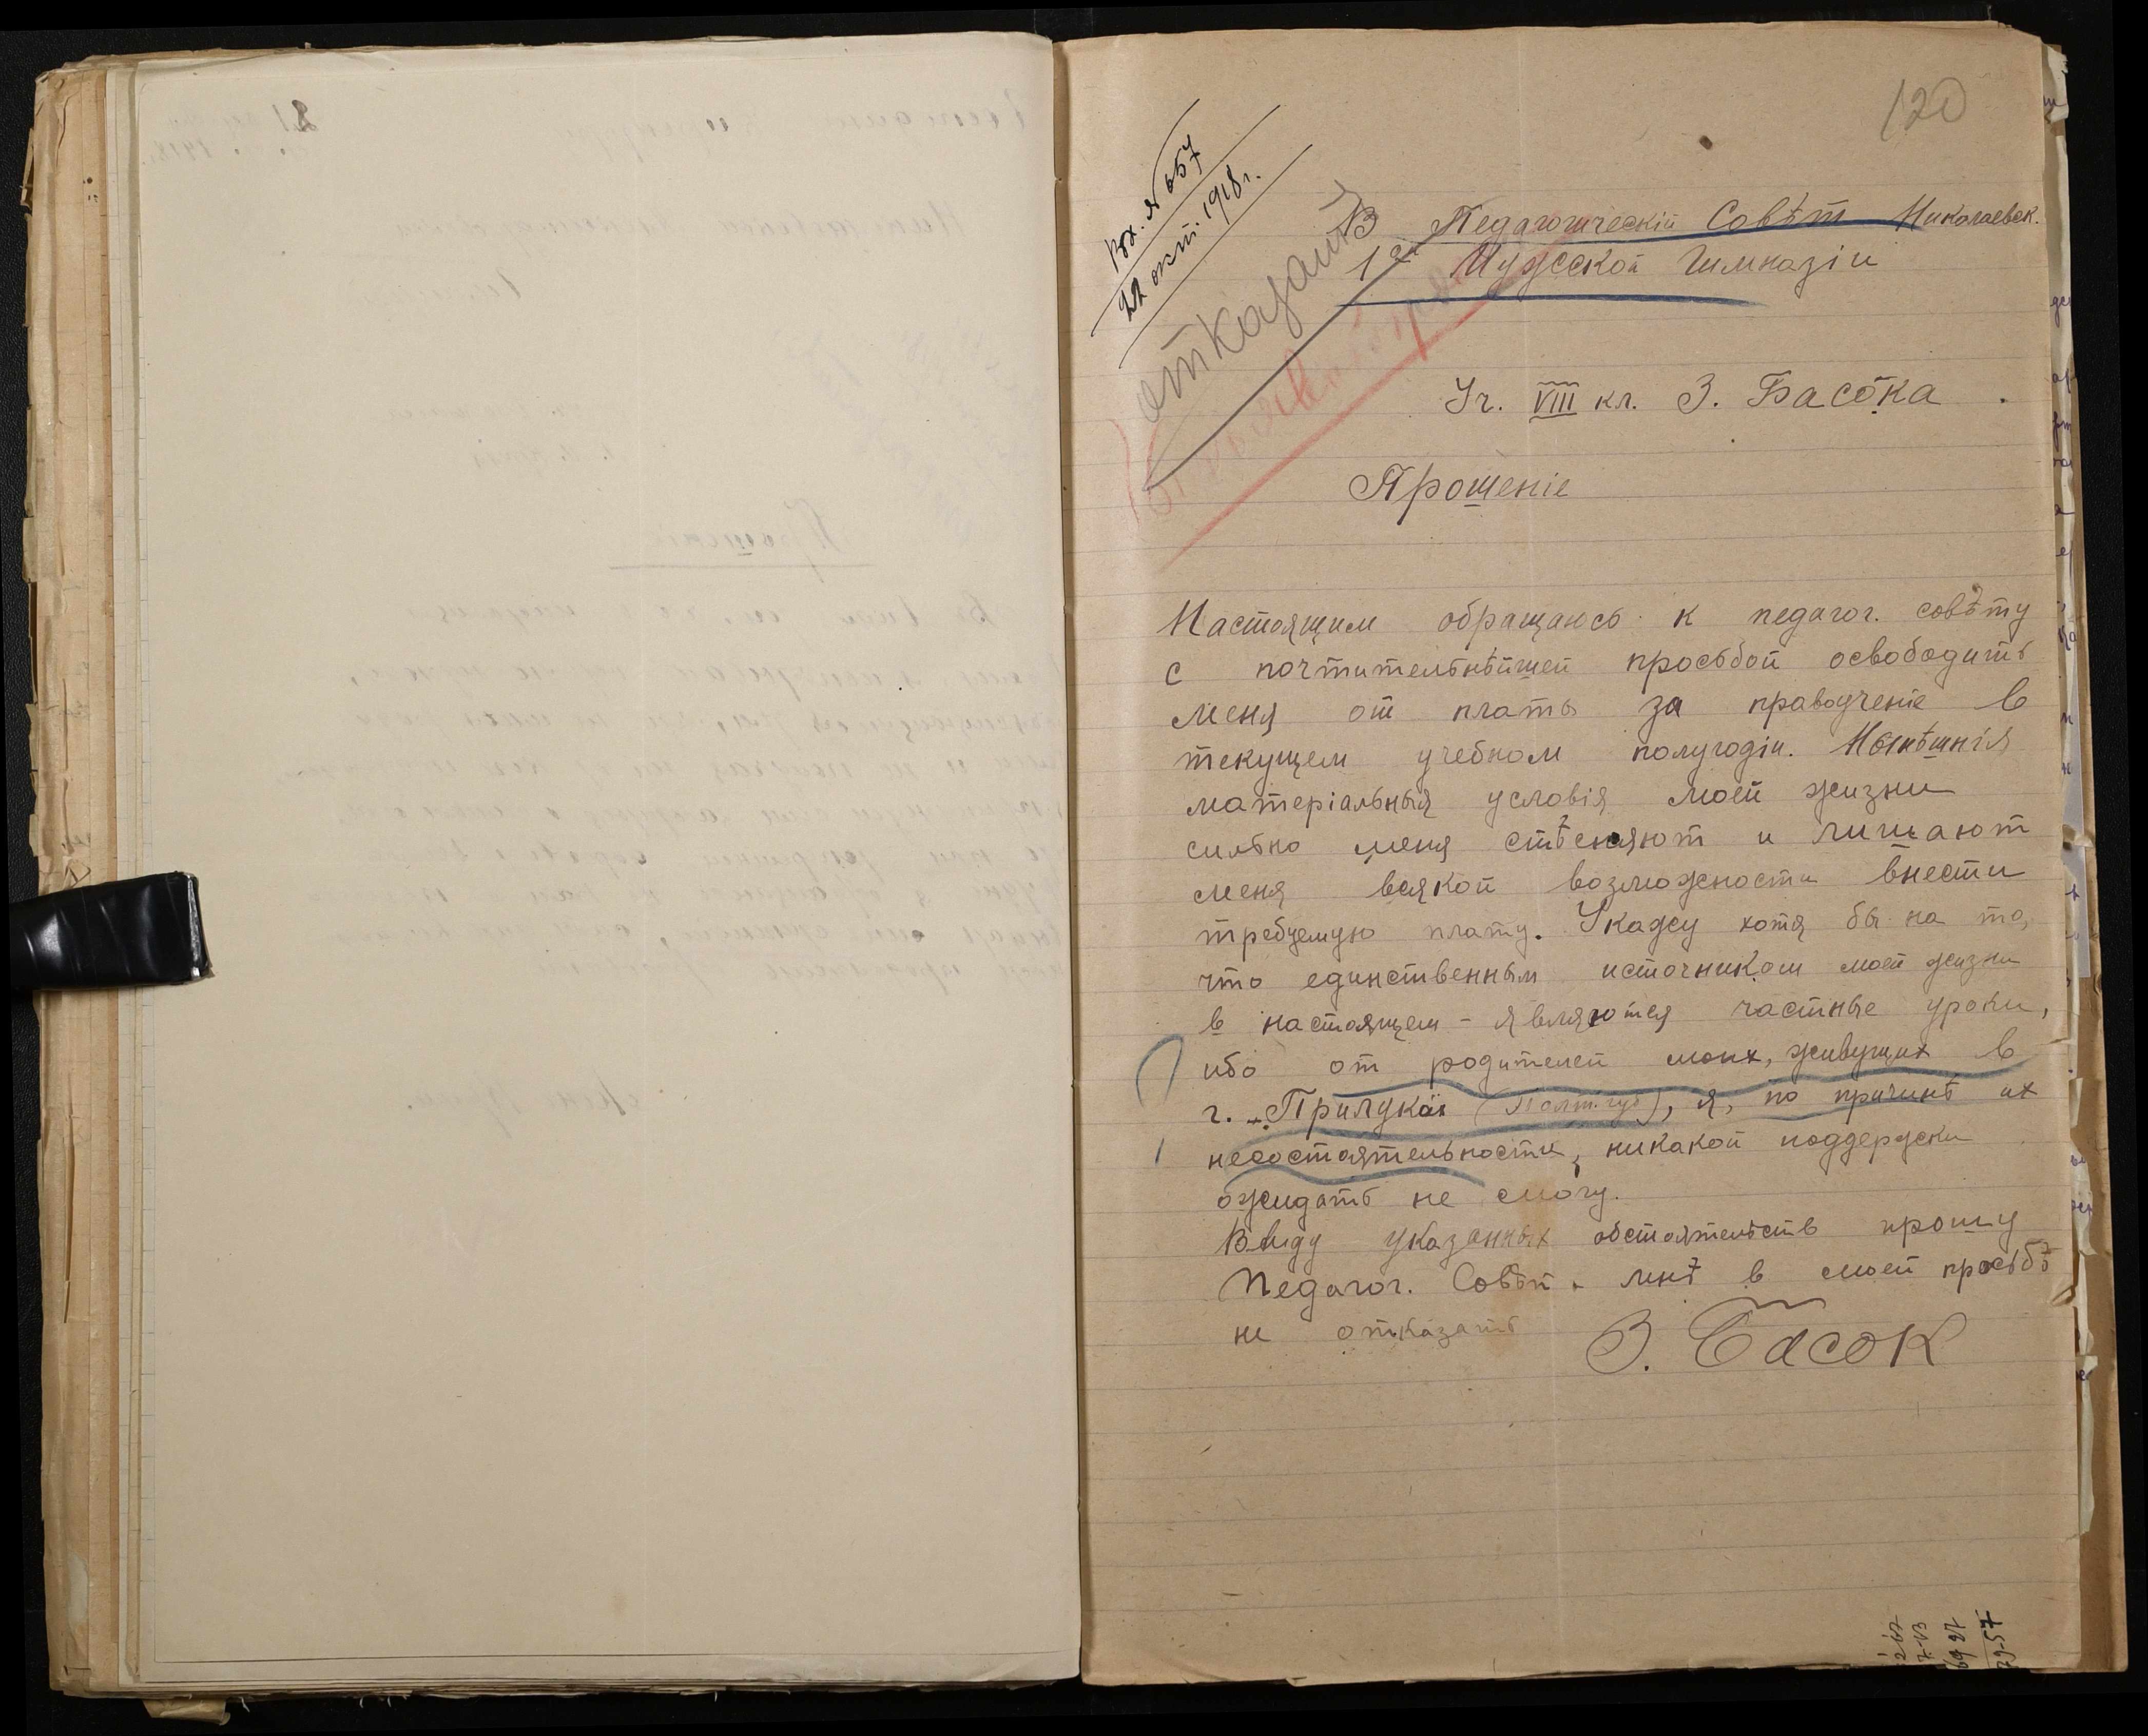 120
Вх. № 657
22 окт. 1918 г.
отказать
В Педагогическій Совѣт Николаевск.
1ой Мужской Гимназіи
Уч. VIII кл. З. Басока
Прошеніе
Настоящим обращаюсь к педагог. совѣту
с почтительнѣйшей просьбой освободить
меня от платы за правоученіе в
текущем учебном полугодіи. Нынѣшнія
матеріальныя условія моей жизни
сильно меня стѣсняют и лишают
меня всякой возможности внести
требуемую плату. Укажу хотя бы на то,
что единственным источником моей жизни
в настоящем - являются частные уроки,
ибо от родителей моих, живущих в
г. Прилуках (Полт. губ), я, по причинѣ их
несостоятельности, никакой поддержки
ожидать не смогу.
Ввиду указанных обстоятельств прошу
Педагог. Совѣт мнѣ в моей просьбѣ
не отказать
З. Басок
69 27
79-57